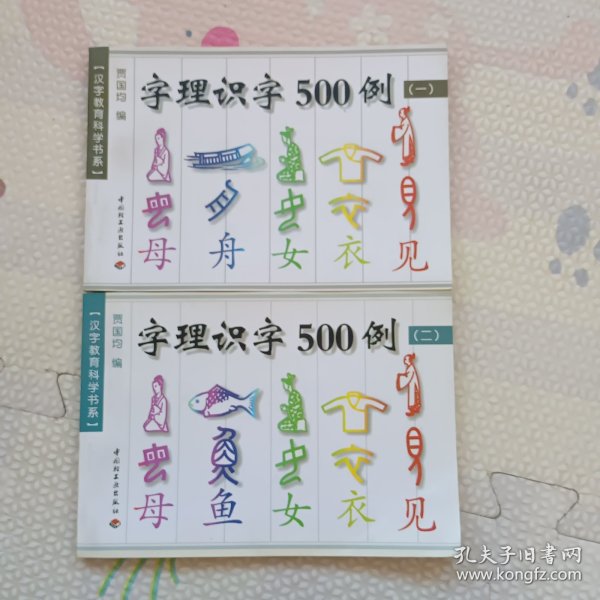 【汉字教育科学书系】
贾国均 编
字理识字500例
(一)
母 舟 女 衣 见
中国轻工业出版社
【汉字教育科学书系】
贾国均 编
字理识字500例
(二)
母 鱼 女 衣 见
中国轻工业出版社
孔夫子旧书网
www.kongfz.com